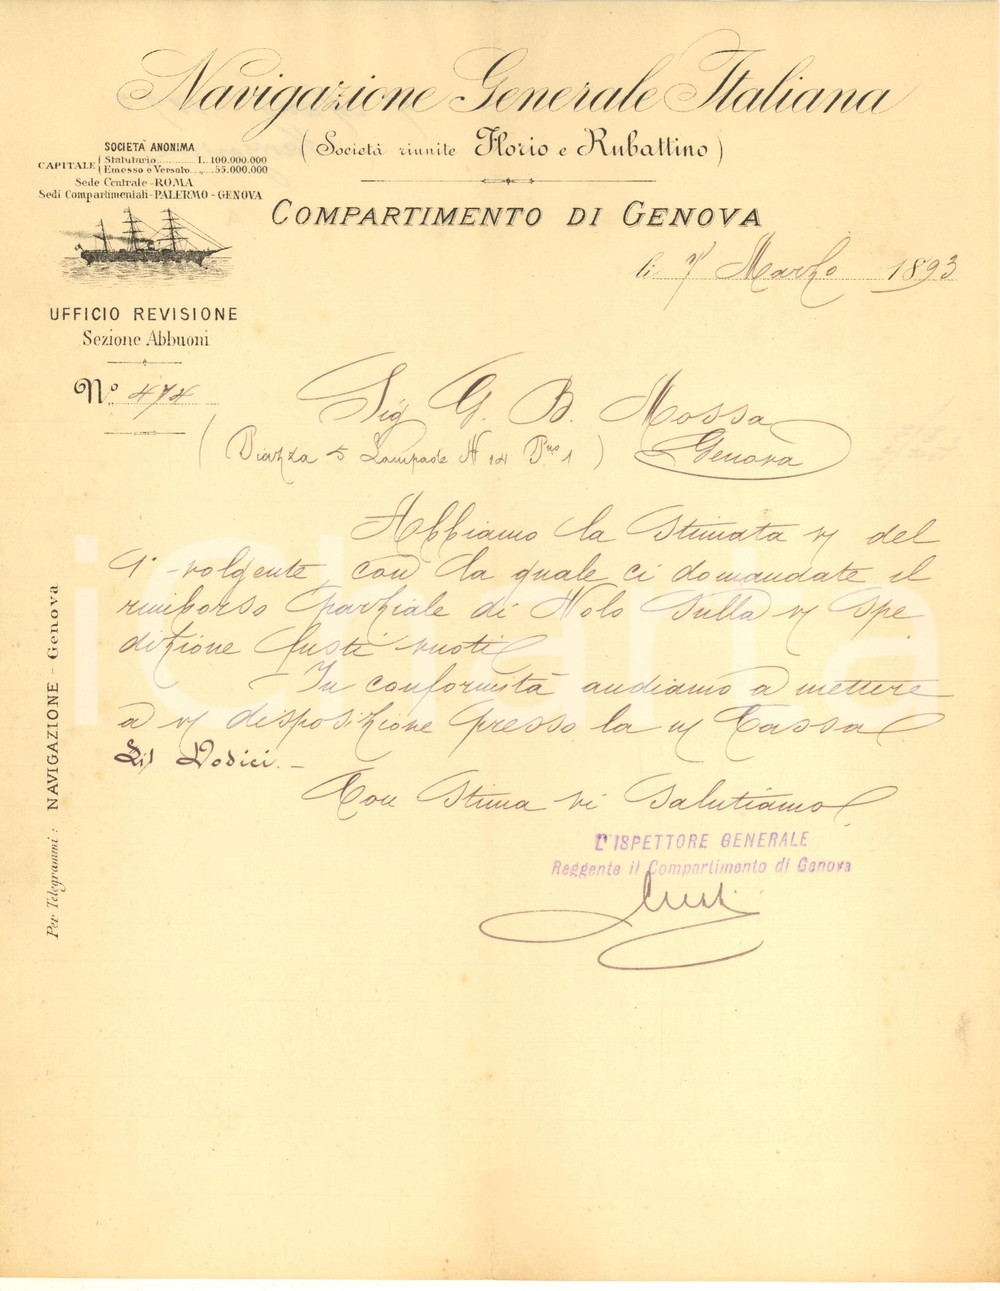 Navigazione Generale Italiana
(Società riunite Florio e Rubattino)
SOCIETÀ ANONIMA
CAPITALE { Statutario ........... L. 100.000.000
Emesso e Versato... „ 55.000.000
Sede Centrale - ROMA
Sedi Compartimentali - PALERMO - GENOVA
COMPARTIMENTO DI GENOVA
li 7 Marzo 1893
UFFICIO REVISIONE
Sezione Abbuoni
N.° 474
Sig G. B. Mossa
(Piazza 5 Lampade N 14 Pno 1) Genova
Abbiamo la stimata v/ del
1° volgente, con la quale ci domandate il
rimborso parziale di Nolo sulla v/ spe
dizione fusti vuoti
In conformità andiamo a mettere
a v/ disposizione presso la n/ Cassa
Lit Dodici. —
Con stima vi salutiamo
L'ISPETTORE GENERALE
Reggente il Compartimento di Genova
Per Telegrammi: NAVIGAZIONE - Genova
iCharta